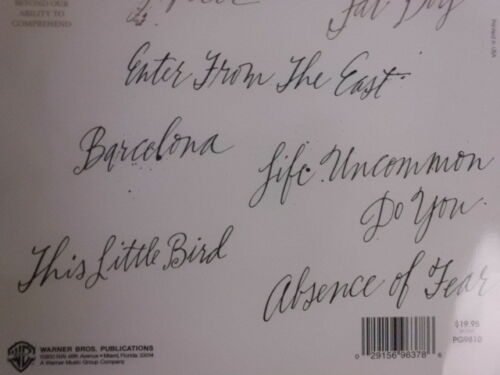 BEYOND OUR
ABILITY TO
COMPREHEND
Fat Boy
Printed in USA
Enter From The East
Barcelona
Life Uncommon
Do You
This Little Bird
Absence of Fear
WARNER BROS. PUBLICATIONS
Miami, Florida 33014
A Warner Music Group Company
$19.95
PG9810
0 29156 96378 8